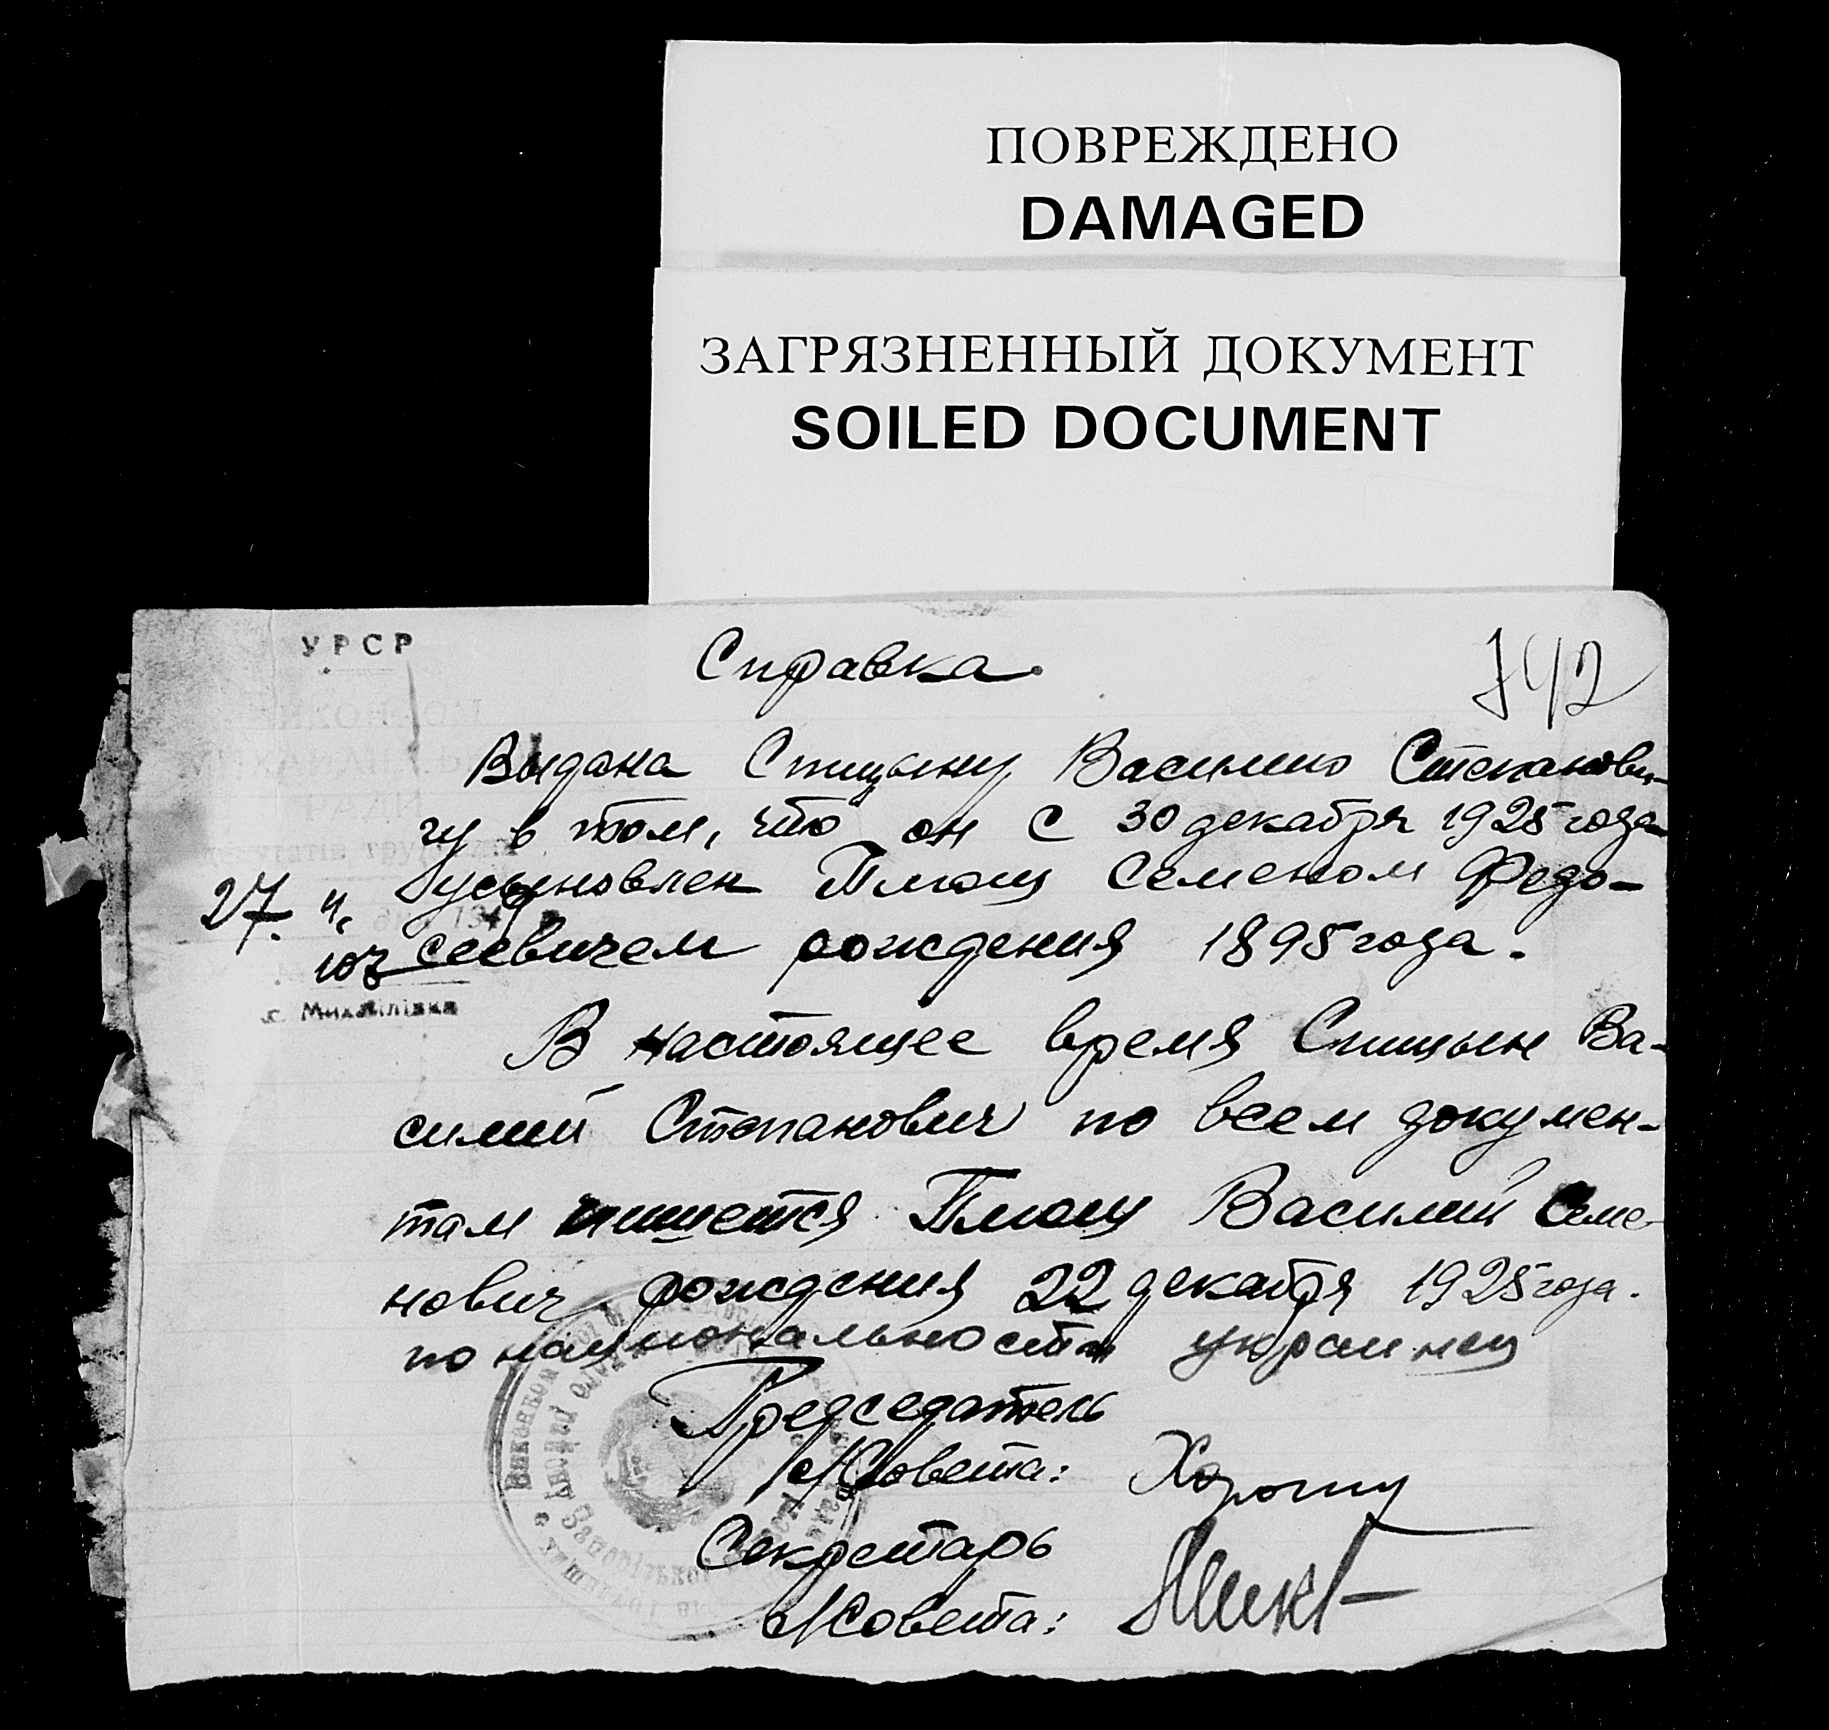 ПОВРЕЖДЕНО
DAMAGED
ЗАГРЯЗНЕННЫЙ ДОКУМЕНТ
SOILED DOCUMENT
УРСР
Справка.
742
Выдана Спицыну Василию Степанови-
чу в том, что он с 30 декабря 1925 года
усыновлен Плющ Семеном Федо-
27. 4.
сеевичем рождения 1895 года.
107
с. Михайлівка
В настоящее время Спицын Ва-
силий Степанович по всем докумен-
там пишется Плющ Василий Семе-
нович рождения 22 декабря 1925 года.
по национальности украинец
Председатель
с/Совета:
Секретарь
с/Совета: